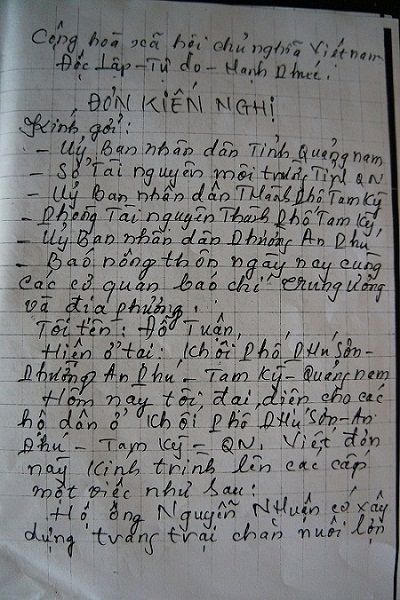 Cộng hoà xã hội chủ nghĩa Việt nam
Độc Lập - Tự do - Hạnh Phúc.
ĐƠN KIẾN NGHỊ
Kính gởi:
- Uỷ Ban nhân dân Tỉnh Quảng nam
- Sở Tài nguyên môi trường Tỉnh QN
- Uỷ Ban nhân dân Thành Phố Tam Kỳ
- Phòng Tài nguyên Thành Phố Tam Kỳ,
- Uỷ Ban nhân dân Phường An Phú
- Báo nông thôn ngày nay cùng
các cơ quan báo chí trung ương
và địa phương.
Tôi tên: Đỗ Tuận,
Hiện ở tại: Khối Phố Phú Sơn -
Phường An Phú - Tam Kỳ - Quảng nam
Hôm nay tôi, đại diện cho các
hộ dân ở Khối Phố Phú Sơn - An
Phú - Tam Kỳ - QN. Viết đơn
này Kính trình lên các cấp
một việc như sau:
Hộ ông Nguyễn Nhuận có xây
dựng trang trại chăn nuôi lợn